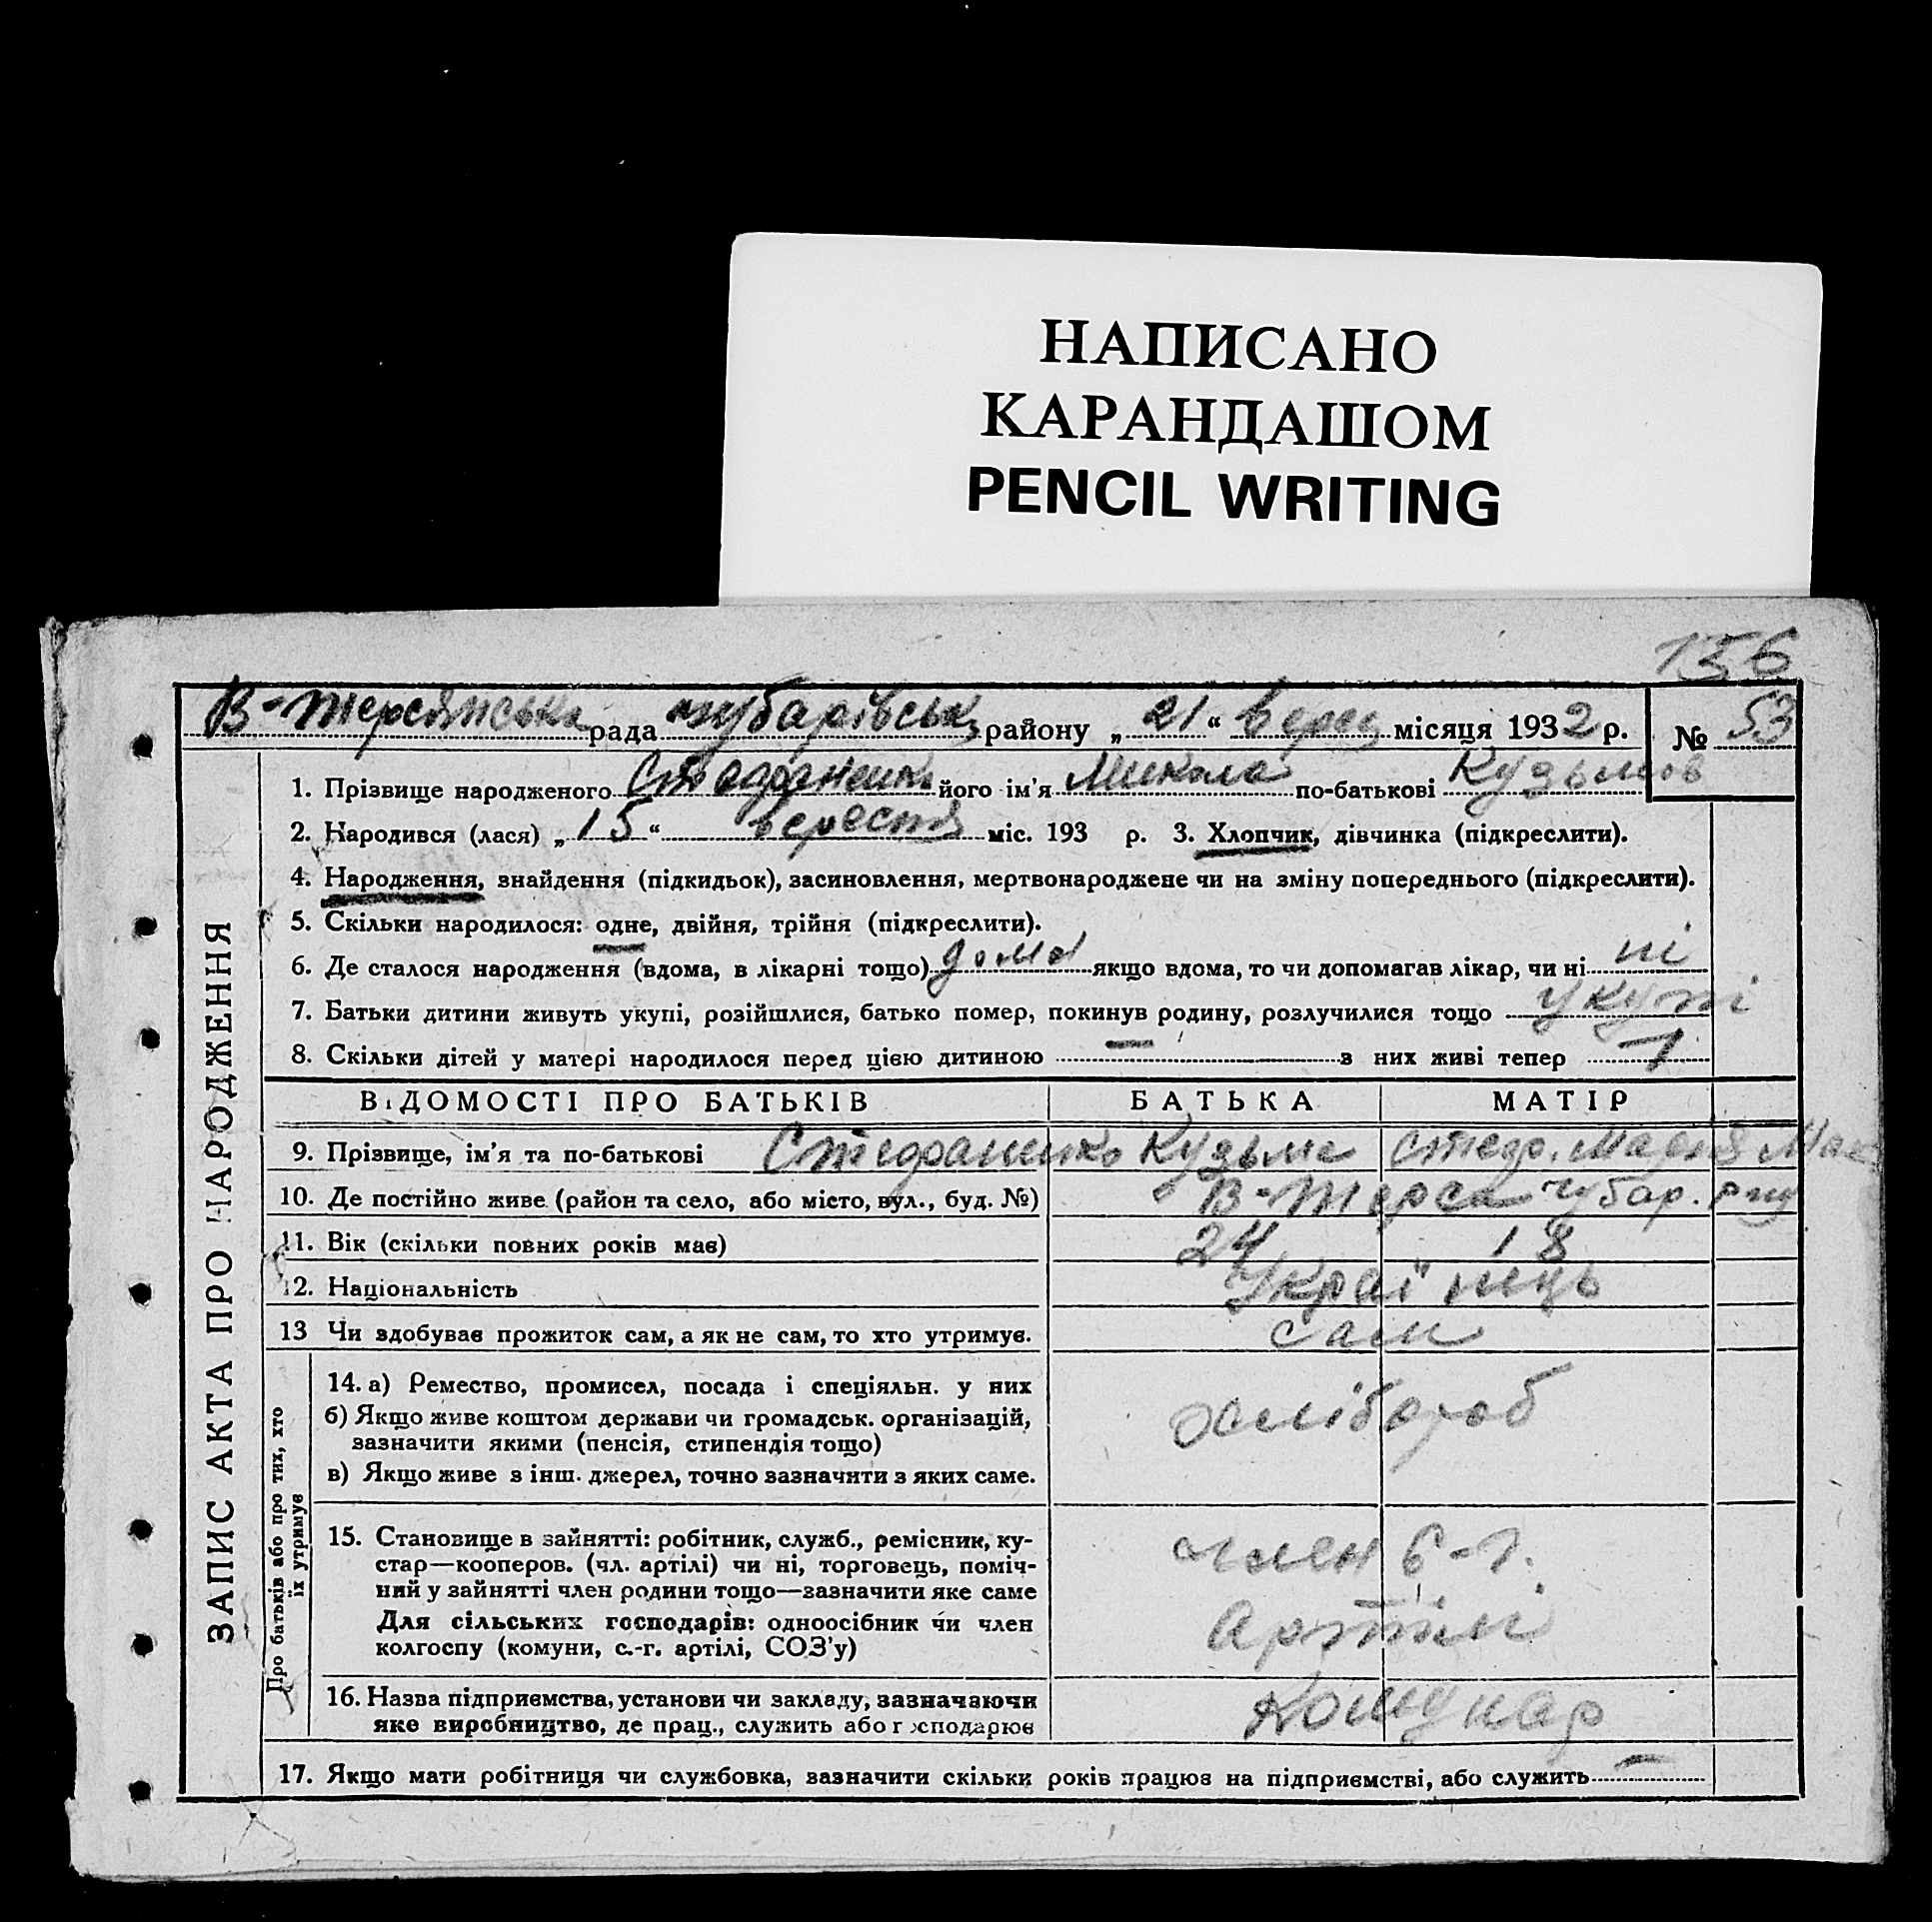 НАПИСАНО
КАРАНДАШОМ
PENCIL WRITING
156
В-Терсянська рада Чубарівськ району „21“ верес місяця 1932 р. № 53
ЗАПИС АКТА ПРО НАРОДЖЕННЯ
1. Прізвище народженого Стефаненко його ім'я Микола по-батькові Кузьмов
2. Народився (лася) „15“ вересня міс. 193 р. 3. Хлопчик, дівчинка (підкреслити).
4. Народження, знайдення (підкидьок), засиновлення, мертвонароджене чи на зміну попереднього (підкреслити).
5. Скільки народилося: одне, двійня, трійня (підкреслити).
6. Де сталося народження (вдома, в лікарні тощо) дома якщо вдома, то чи допомагав лікар, чи ні ні
7. Батьки дитини живуть укупі, розійшлися, батько помер, покинув родину, розлучилися тощо укупі
8. Скільки дітей у матері народилося перед цією дитиною — з них живі тепер 1
ВІДОМОСТІ ПРО БАТЬКІВ БАТЬКА МАТІР
9. Прізвище, ім'я та по-батькові Стефаненко Кузьма Стеф. Марія
10. Де постійно живе (район та село, або місто, вул., буд. №) В-Терса Чубар. р-ну
11. Вік (скільки повних років має) 24 18
12. Національність Українець
13 Чи здобуває прожиток сам, а як не сам, то хто утримує. сам
Про батьків або про тих, хто
їх утримує
14. а) Ремество, промисел, посада і спеціяльн. у них
б) Якщо живе коштом держави чи громадськ. організацій,
зазначити якими (пенсія, стипендія тощо)
в) Якщо живе з інш. джерел, точно зазначити з яких саме.
хлібороб
15. Становище в зайнятті: робітник, служб., ремісник, ку-
стар—кооперов. (чл. артілі) чи ні, торговець, поміч-
ний у зайнятті член родини тощо—зазначити яке саме
Для сільських господарів: одноосібник чи член
колгоспу (комуни, с.-г. артілі, СОЗ'у)
член с-г.
артілі
16. Назва підприємства, установи чи закладу, зазначаючи
яке виробництво, де прац., служить або господарює
Комунар
17. Якщо мати робітниця чи службовка, зазначити скільки років працює на підприємстві, або служить —